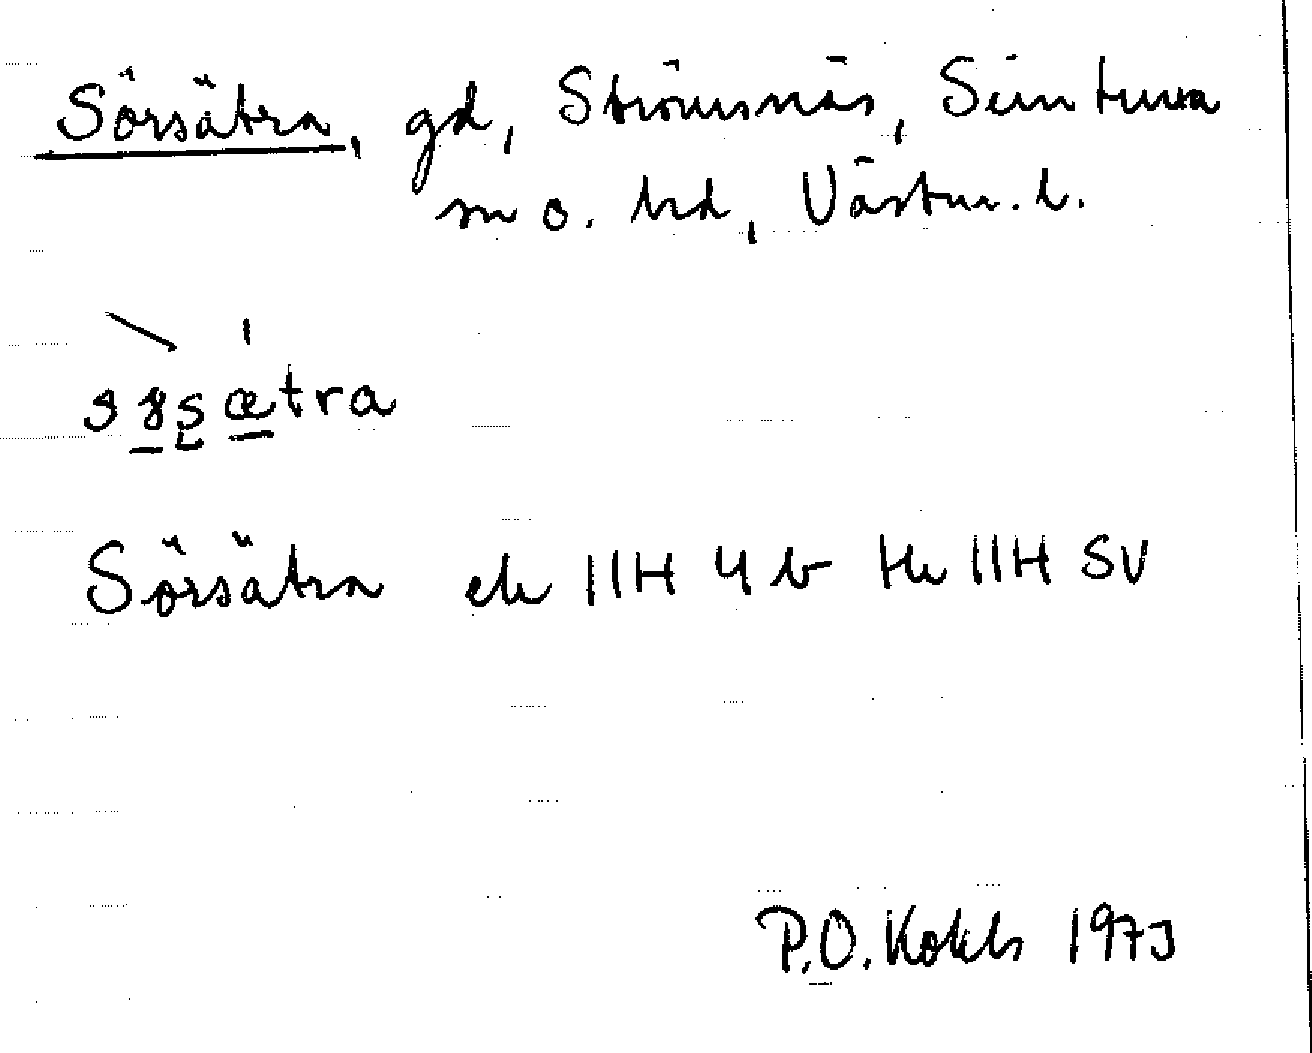 Sörsätra, gd, Strömsnäs, Simtuna
sn o. hd, Västm. l.
Sörsätra ek 11H 4 b Hk 11H SV
P.O. 1973